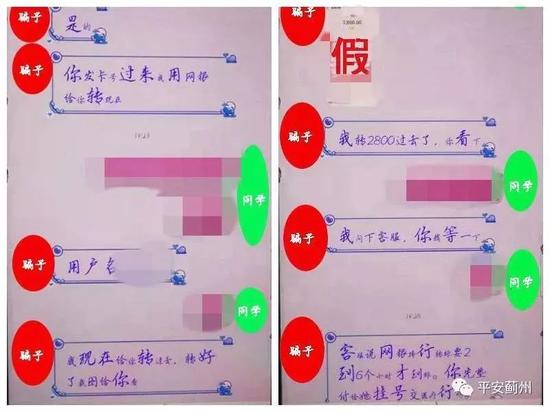 骗子
是的
骗子
你发卡号过来我用网银
给你转现在
同学
骗子
用户名
同学
骗子
我现在给你转过去，转好
了我图给你看
假
骗子
我转2800过去了，你看下
同学
骗子
我问下客服，你我等一下
同学
骗子
客服说网银跨行转账要2
到6个小时才到账，你先垫
付给她挂号交医疗行
平安蓟州